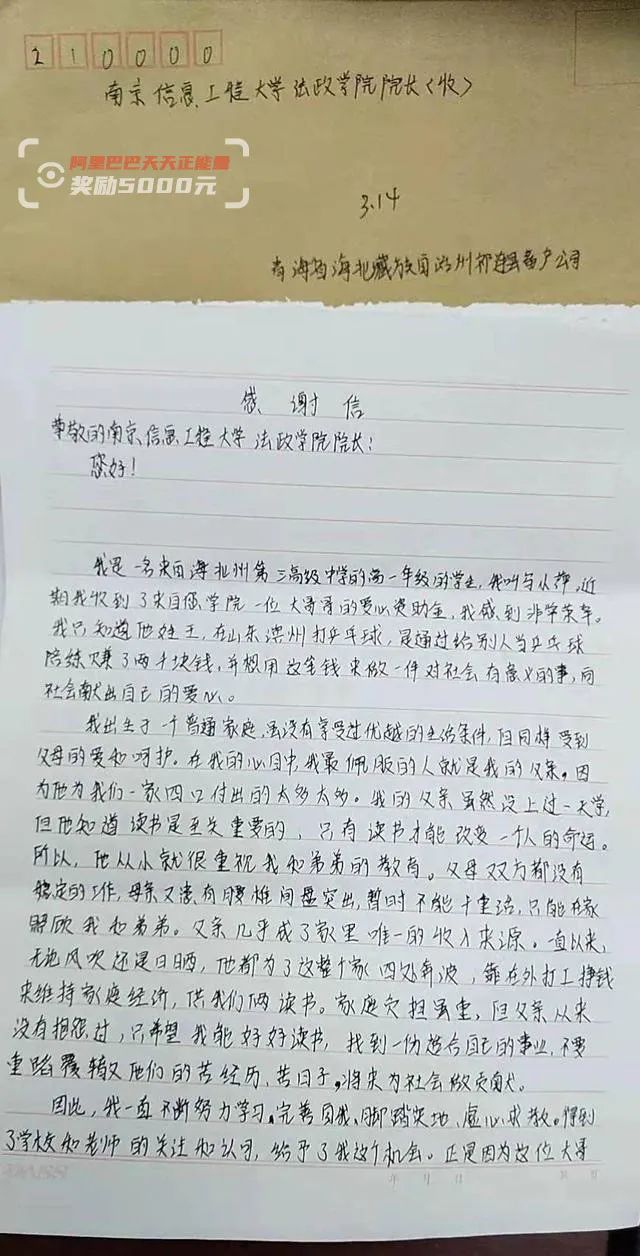 210000
南京信息工程大学法政学院院长(收)
阿里巴巴天天正能量
奖励5000元
3.14
青海省海北藏族自治州祁连县畜产公司
感谢信
尊敬的南京信息工程大学法政学院院长:
您好!
我是一名来自海北州第三高级中学的高一年级的学生,我叫马从萍,近
期我收到了来自您学院一位大哥哥的爱心资助金,我感到非常荣幸。
我只知道他姓王,在山东滨州打乒乓球,是通过给别人当乒乓球
陪练赚了两千块钱,并想用这笔钱来做一件对社会有意义的事,向
社会献出自己的爱心。
我出生于一个普通家庭,虽没有享受过优越的生活条件,但同样受到
父母的爱和呵护。在我的心目中,我最佩服的人就是我的父亲。因
为他为我们一家四口付出的太多太多。我的父亲虽然没上过一天学,
但他知道读书是至关重要的,只有读书才能改变一个人的命运。
所以,他从小就很重视我和弟弟的教育。父母双方都没有
稳定的工作,母亲又患有腰椎间盘突出,暂时不能干重活,只能在家
照顾我和弟弟。父亲几乎成了家里唯一的收入来源。一直以来,
无论风吹还是日晒,他都为了这整个家四处奔波,靠在外打工挣钱
来维持家庭经济,供我们俩读书。家庭负担虽重,但父亲从来
没有抱怨过,只希望我能好好读书,找到一份适合自己的事业,不要
重蹈覆辙他们的苦经历、苦日子,将来为社会做贡献。
因此,我一直不断努力学习,完善自我、脚踏实地、虚心求教。得到
了学校和老师的关注和认可,给予了我这个机会。正是因为这位大哥
年 月 日